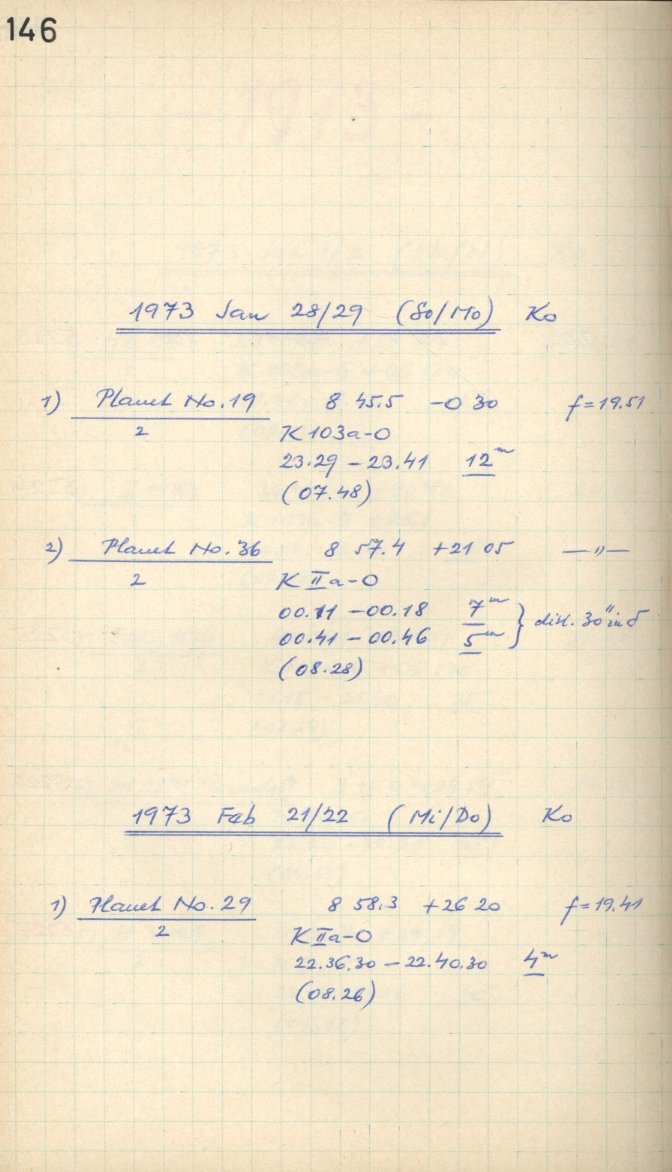 146
1973 Jan 28/29 (So/Mo) Ko
1) Planet No. 19 8 45.5 -0 30 f=19.51
2 K 103a-O
23.29 – 23.41 12ᵐ
(07.48)
2) Planet No. 36 8 57.4 +21 05 —"—
2 K IIa-O
00.11 – 00.18 7ᵐ } dist. 30" in δ
00.41 – 00.46 5ᵐ
(08.28)
1973 Feb 21/22 (Mi/Do) Ko
1) Planet No. 29 8 58.3 +26 20 f=19.41
2 K IIa-O
22.36.30 – 22.40.30 4ᵐ
(08.26)